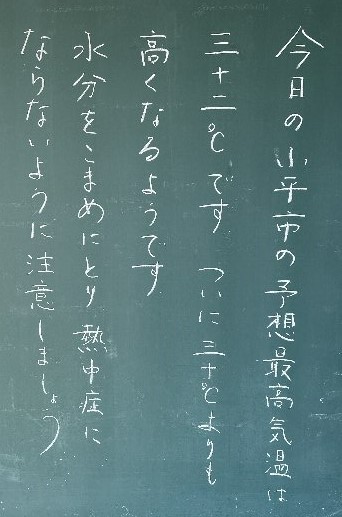 今日の小平市の予想最高気温は
三十二℃です ついに三十℃よりも
高くなるようです
水分をこまめにとり 熱中症に
ならないように注意しましょう